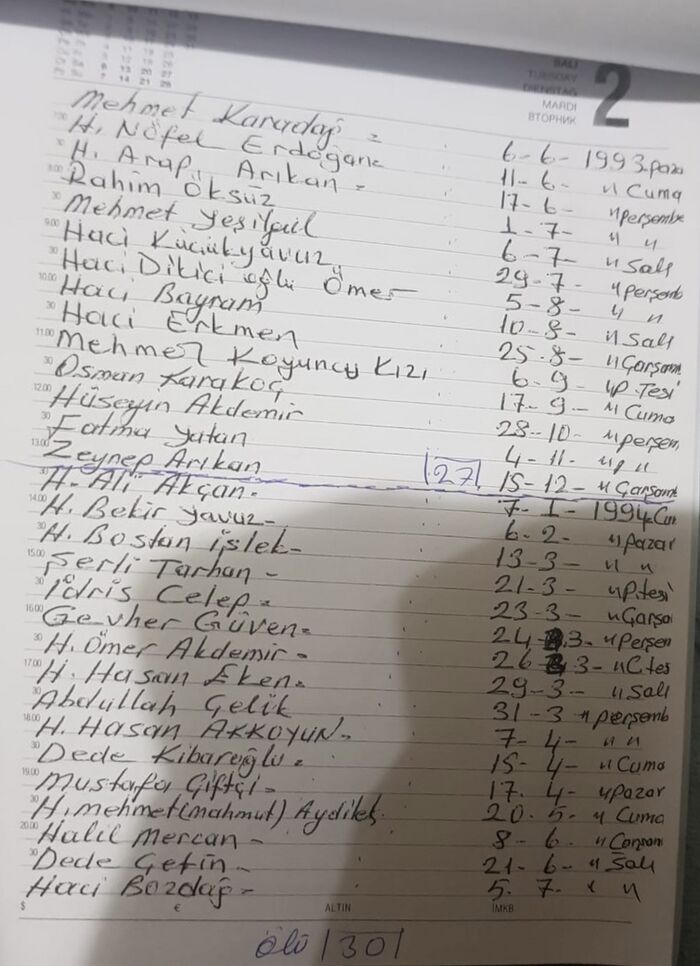 SALI
TUESDAY
DIENSTAG
MARDI
ВТОРНИК
2
Mehmet Karadağ = 6-6-1993.paza
H. Nöfel Erdoğan 11-6- " Cuma
H. Arap, Arıkan = 17-6- " perşembe
Rahim Öksüz 1-7- " "
Mehmet Yeşilgül 6-7- " Salı
Haci Küçükyavuz 29-7- " perşemb
Haci Dikici oğlu Ömer 5-8- " "
Haci Bayram 10-8- " Salı
Haci Erkmen 25-8- " Çarşam
Mehmet Koyuncu Kızı 6-9- " P.Tesi
Osman Karakoç 17-9- " Cuma
Hüseyin Akdemir 28-10- " perşem
Fatma Yatan 4-11- " p "
Zeynep Arıkan 27 15-12- " Çarşamb
H. Ali Akçan- 7-1-1994.Cum
H. Bekir Yavuz- 6-2- " pazar
H. Bostan İşlek- 13-3- " "
Şerli Tarhan- 21-3- " P.tesi
İdris Celep= 23-3- " Çarşa
Gevher Güven= 24-3- " Perşen
H. Ömer Akdemir- 26-3- " C.tes
H. Hasan Eken= 29-3- " Salı
Abdullah Çelik 31-3 " perşemb
H. Hasan AKKOYUN- 7-4- " "
Dede Kibaroğlu= 15-4- " Cuma
Mustafa Çiftçi- 17.4- " pazar
H. mehmet (mahmut) Aydilek 20.5- " Cuma
Halil Mercan- 8-6- " Çarşam
Dede Çetin- 21-6- " Salı
Haci Bozdağ= 5-7- " "
$ € ALTIN İMKB
ölü 30